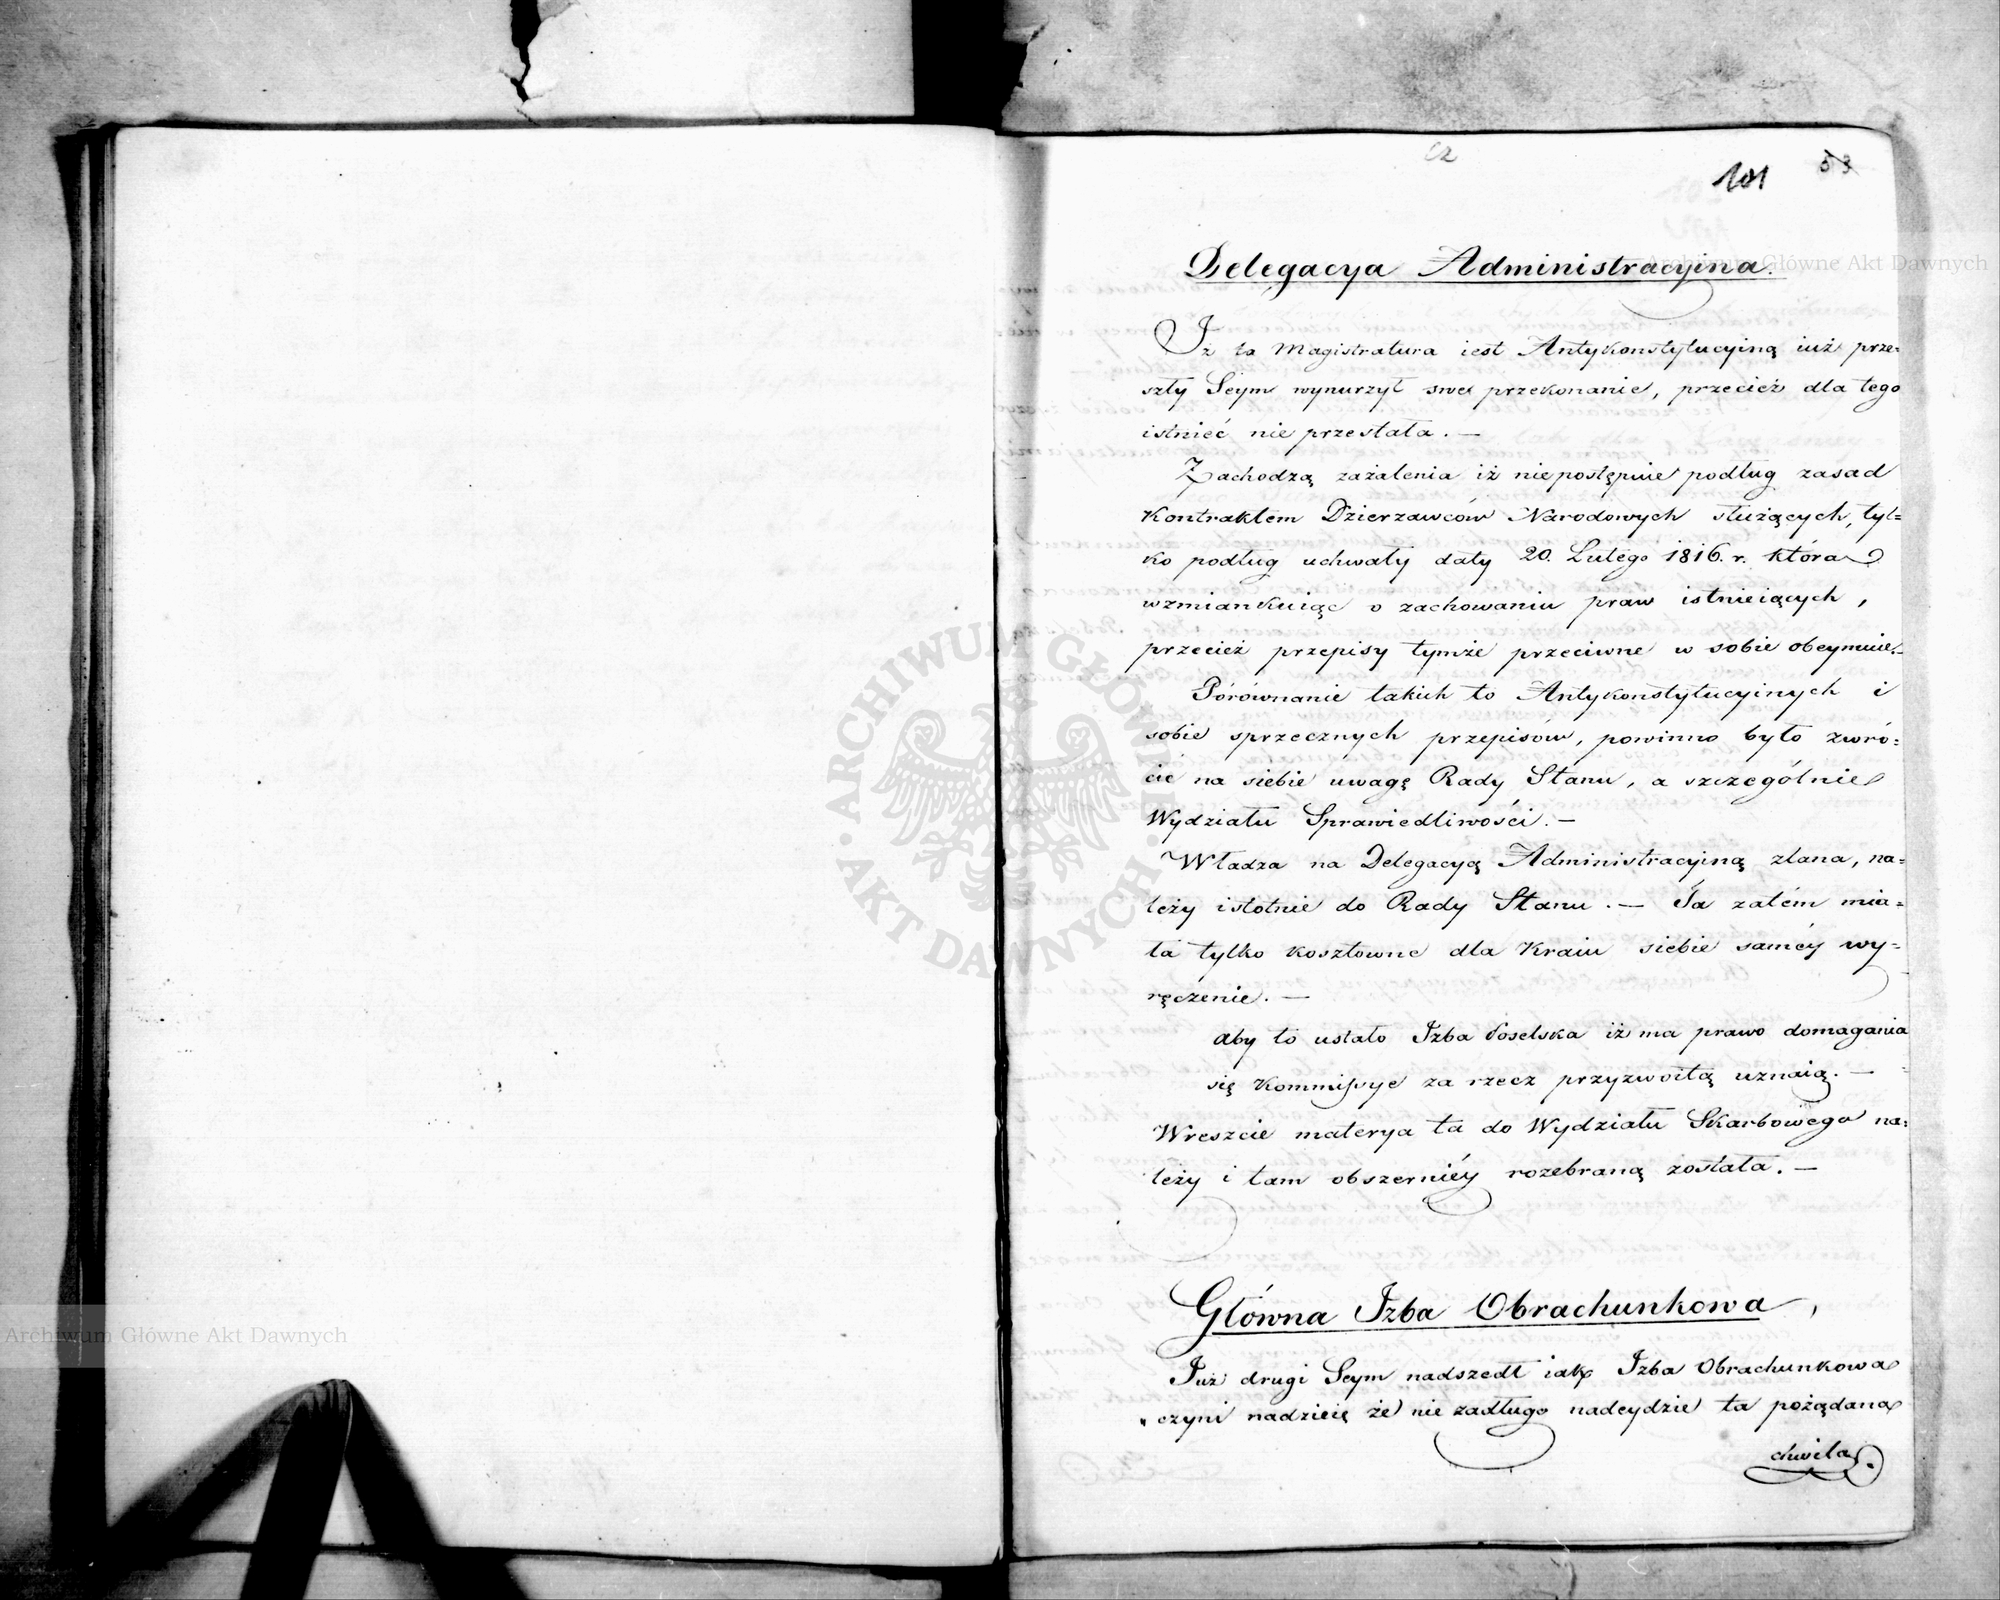 62
101
53
Delegacya Administracyina.
Iż ta Magistratura iest Antykonstytucyiną iuż prze=
szły Seym wynurzył swe przekonanie, przecież dla tego
istnieć nie przestała. —
Zachodzą zażalenia iż niepostępuie podług zasad
Kontraktem Dzierzawców Narodowych służących, tyl=
ko podług uchwały daty 20. Lutego 1816. r. która
wzmiankuiąc o zachowaniu praw istnieiących,
przecież przepisy tymże przeciwne w sobie obeymuie. —
Pórównanie takich to Antykonstytucyinych i
sobie sprzecznych przepisów, powinno było zwró=
cić na siebie uwagę Rady Stanu, a szczególnie
Wydziału Sprawiedliwości. —
Władza na Delegacyą Administracyiną zlana, na=
leży istotnie do Rady Stanu. — Ta zatém mia=
ła tylko kosztowne dla Kraiu siebie saméy wy=
ręczenie. —
aby to ustało Izba Poselska iż ma prawo domagania
się Kommissye za rzecz przyzwoitą uznaią. —
Wreszcie materya ta do Wydziału Skarbowego na=
leży i tam obszerniéy rozebraną została. —
Główna Izba Obrachunkowa,
Iuż drugi Seym nadszedł iak Izba Obrachunkowa
„czyni nadzieię że nie zadługo nadeydzie ta pożądana
chwila.
Archiwum Główne Akt Dawnych
Archiwum Główne Akt Dawnych
ARCHIWUM GŁÓWNE · AKT DAWNYCH ·